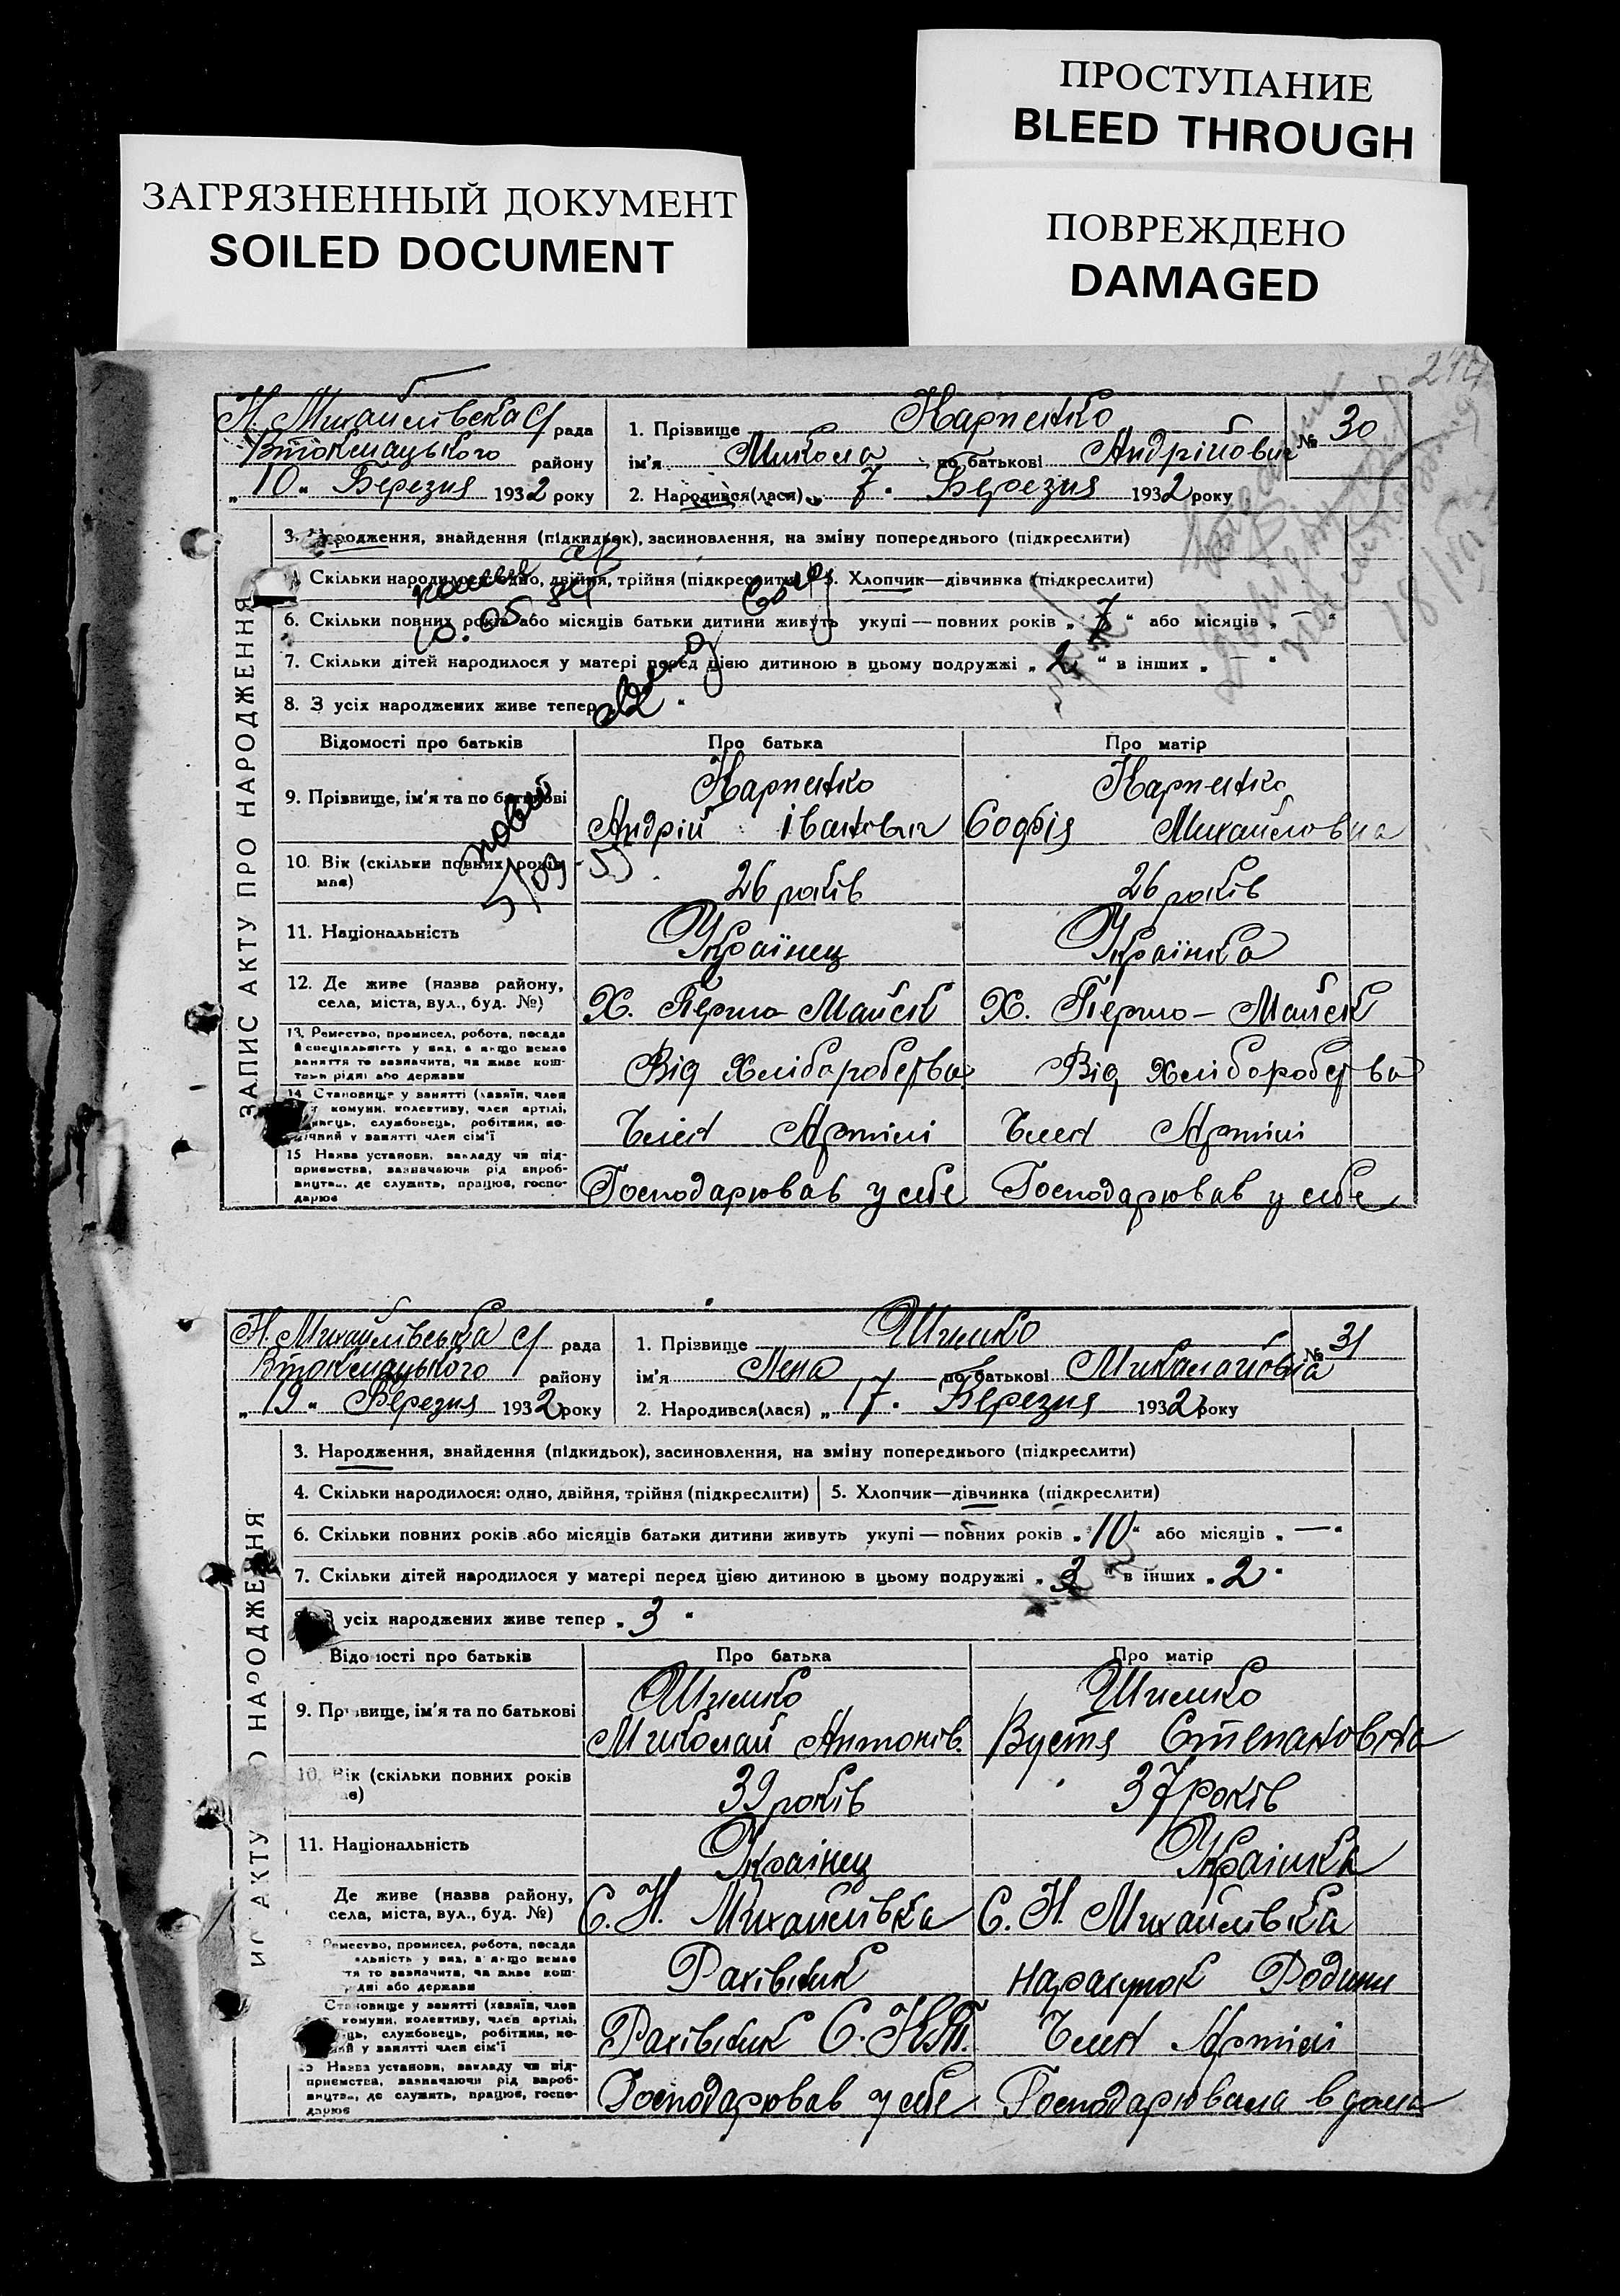 ПРОСТУПАНИЕ
BLEED THROUGH
ЗАГРЯЗНЕННЫЙ ДОКУМЕНТ
SOILED DOCUMENT
ПОВРЕЖДЕНО
DAMAGED
ЗАПИС АКТУ ПРО НАРОДЖЕННЯ
Н. Михайлівська с/рада
Втокмацького району
„10“ Березня 1932 року
1. Прізвище Карпенко
№ 30
ім'я Микола по батькові Андрійович
2. Народився(лася) „7“ Березня 1932 року
3. Народження, знайдення (підкидьок), засиновлення, на зміну попереднього (підкреслити)
Скільки народилося: одно, двійня, трійня (підкреслити) 5. Хлопчик—дівчинка (підкреслити)
6. Скільки повних років або місяців батьки дитини живуть укупі — повних років „7“ або місяців „—“
7. Скільки дітей народилося у матері перед цією дитиною в цьому подружжі „2“ в інших „—“
8. З усіх народжених живе тепер „2“
Відомості про батьків Про батька Про матір
9. Прізвище, ім'я та по батькові Карпенко Карпенко
Андрій Іванович Софія Михайловна
10. Вік (скільки повних років має) 26 років 26 років
11. Національність Українец Українка
12. Де живе (назва району, села, міста, вул., буд. №) Х. Першо-Майськ Х. Першо-Майськ
13. Ремество, промисел, робота, посада й спеціяльність у них, а якщо немає заняття то зазначити, чи живе коштами рідні або держави Від Хліборобства Від Хліборобства
14. Становище у занятті (хазяїн, член комуни, колективу, член артілі, службовець, робітник, член сім'ї Член Артілі Член Артілі
15. Назва установи, закладу чи підприємства, зазначаючи рід виробництва, де служить, працює, господарює Господарював у себе Господарював у себе
Н. Михайлівська с/рада
Втокмацького району
„19“ Березня 1932 року
1. Прізвище Шимко
№ 31
ім'я Лена по батькові Миколаіовна
2. Народився(лася) „17“ Березня 1932 року
3. Народження, знайдення (підкидьок), засиновлення, на зміну попереднього (підкреслити)
4. Скільки народилося: одно, двійня, трійня (підкреслити) 5. Хлопчик—дівчинка (підкреслити)
6. Скільки повних років або місяців батьки дитини живуть укупі — повних років „10“ або місяців „—“
7. Скільки дітей народилося у матері перед цією дитиною в цьому подружжі „3“ в інших „2“
усіх народжених живе тепер „3“
Відомості про батьків Про батька Про матір
9. Прізвище, ім'я та по батькові Шимко Шимко
Миколай Антонів. Вустя Степановна
10. Вік (скільки повних років має) 39 років 37 років
11. Національність Українец Українка
Де живе (назва району, села, міста, вул., буд. №) С. Н. Михайлівка С. Н. Михайлівка
Ремество, промисел, робота, посада Рахівник на рахунок Родини
Становище у занятті (хазяїн, член комуни, колективу, член артілі, службовець, робітник, член сім'ї Рахівник Член Артілі
Назва установи, закладу чи підприємства, зазначаючи рід виробництва, де служить, працює, господарює Господарював у себе Господарювала вдома